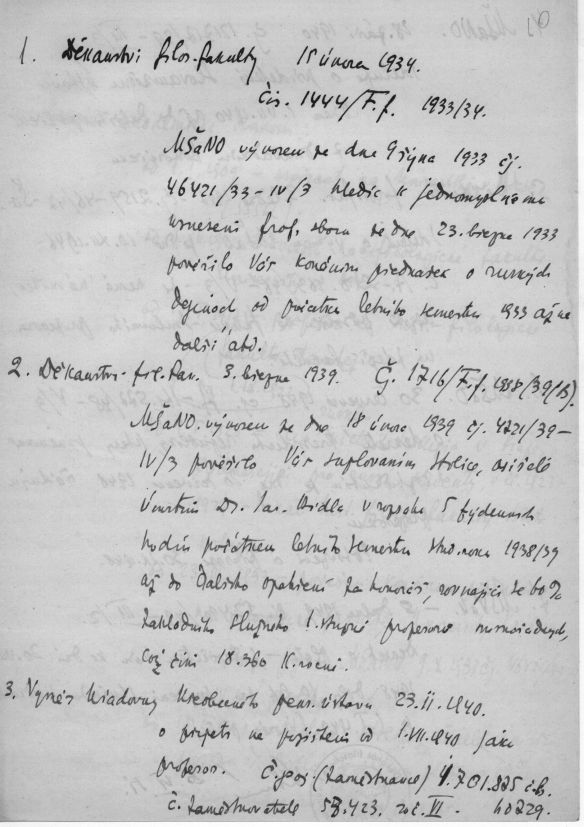 1. Děkanství filos. fakulty 15 února 1934.
čís. 1444/F.f. 1933/34.
MŠaNO výnosem ze dne 9 října 1933 čj.
46421/33-IV/3 hledíc k jednomyslnému
usnesení prof. sboru ze dne 23. března 1933
pověřilo Vás konáním přednášek o ruských
dějinách od počátku letního semestru 1933 až na
další
2. Děkanství fil. fak. 3. března 1939. Č. 1716/F.f. 1938/39
MŠaNO. výnosem ze dne 18 února 1939 čj. 4721/39-
IV/3 pověřilo Vás suplováním stolice, osiřelé
úmrtím Dr. Jar. Bidla v rozsahu 5 týdenních
hodin počátkem letního semestru stud. roku 1938/39
až do dalšího opatření za honorář, rovnající se 60%
základního služného 1. stupně profesorů mimořádných,
což činí 18.360 K ročně.
3. Výnos Všeobecného pens. ústavu 23.II.1940.
o pojištění od 1.VII.1940 jako
profesor. (zaměstnance) 1.701.825
č. zaměstnavatele 423. VI. 40229.